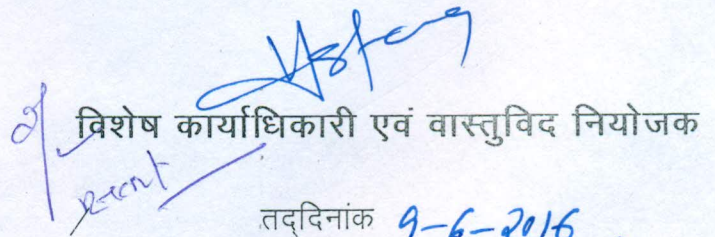 विशेष कार्याधिकारी एवं वास्तुविद नियोजक
तद्दिनांक 9-6-2016